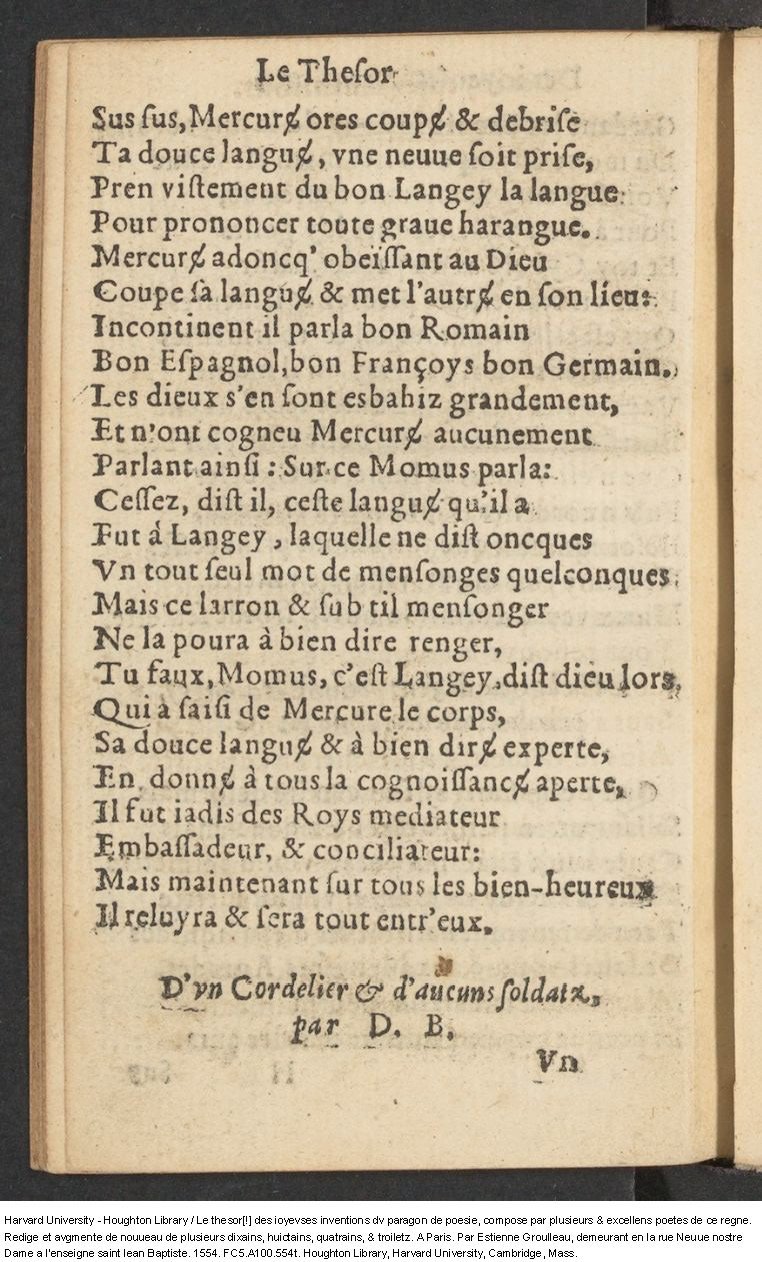 Le Theſor
Sus ſus, Mercurɇ ores coupɇ & debriſe
Ta douce languɇ, vne neuue ſoit priſe,
Pren viſtement du bon Langey la langue
Pour prononcer toute graue harangue.
Mercurɇ adoncq' obeiſſant au Dieu
Coupe ſa languɇ & met l'autrɇ en ſon lieu:
Incontinent il parla bon Romain
Bon Eſpagnol, bon Françoys bon Germain.
Les dieux s'en ſont esbahiz grandement,
Et n'ont cogneu Mercurɇ aucunement
Parlant ainſi : Sur ce Momus parla:
Ceſſez, diſt il, ceſte languɇ qu'il a
Fut á Langey, laquelle ne diſt oncques
Vn tout ſeul mot de menſonges quelconques,
Mais ce larron & ſub til menſonger
Ne la poura à bien dire renger,
Tu faux, Momus, c'eſt Langey, diſt dieu lors,
Qui à ſaiſi de Mercure le corps,
Sa douce languɇ & à bien dirɇ experte,
En donnɇ à tous la cognoiſſancɇ aperte,
Il fut iadis des Roys mediateur
Embaſſadeur, & conciliateur:
Mais maintenant ſur tous les bien-heureux
Il reluyra & ſera tout entr'eux.
D'vn Cordelier & d'aucuns ſoldatz,
par D. B.
Vn
Harvard University - Houghton Library / Le thesor[!] des ioyevses inventions dv paragon de poesie, compose par plusieurs & excellens poetes de ce regne.
Redige et avgmente de nouueau de plusieurs dixains, huictains, quatrains, & troiletz. A Paris. Par Estienne Groulleau, demeurant en la rue Neuue nostre
Dame a l'enseigne saint Iean Baptiste. 1554. FC5.A100.554t. Houghton Library, Harvard University, Cambridge, Mass.